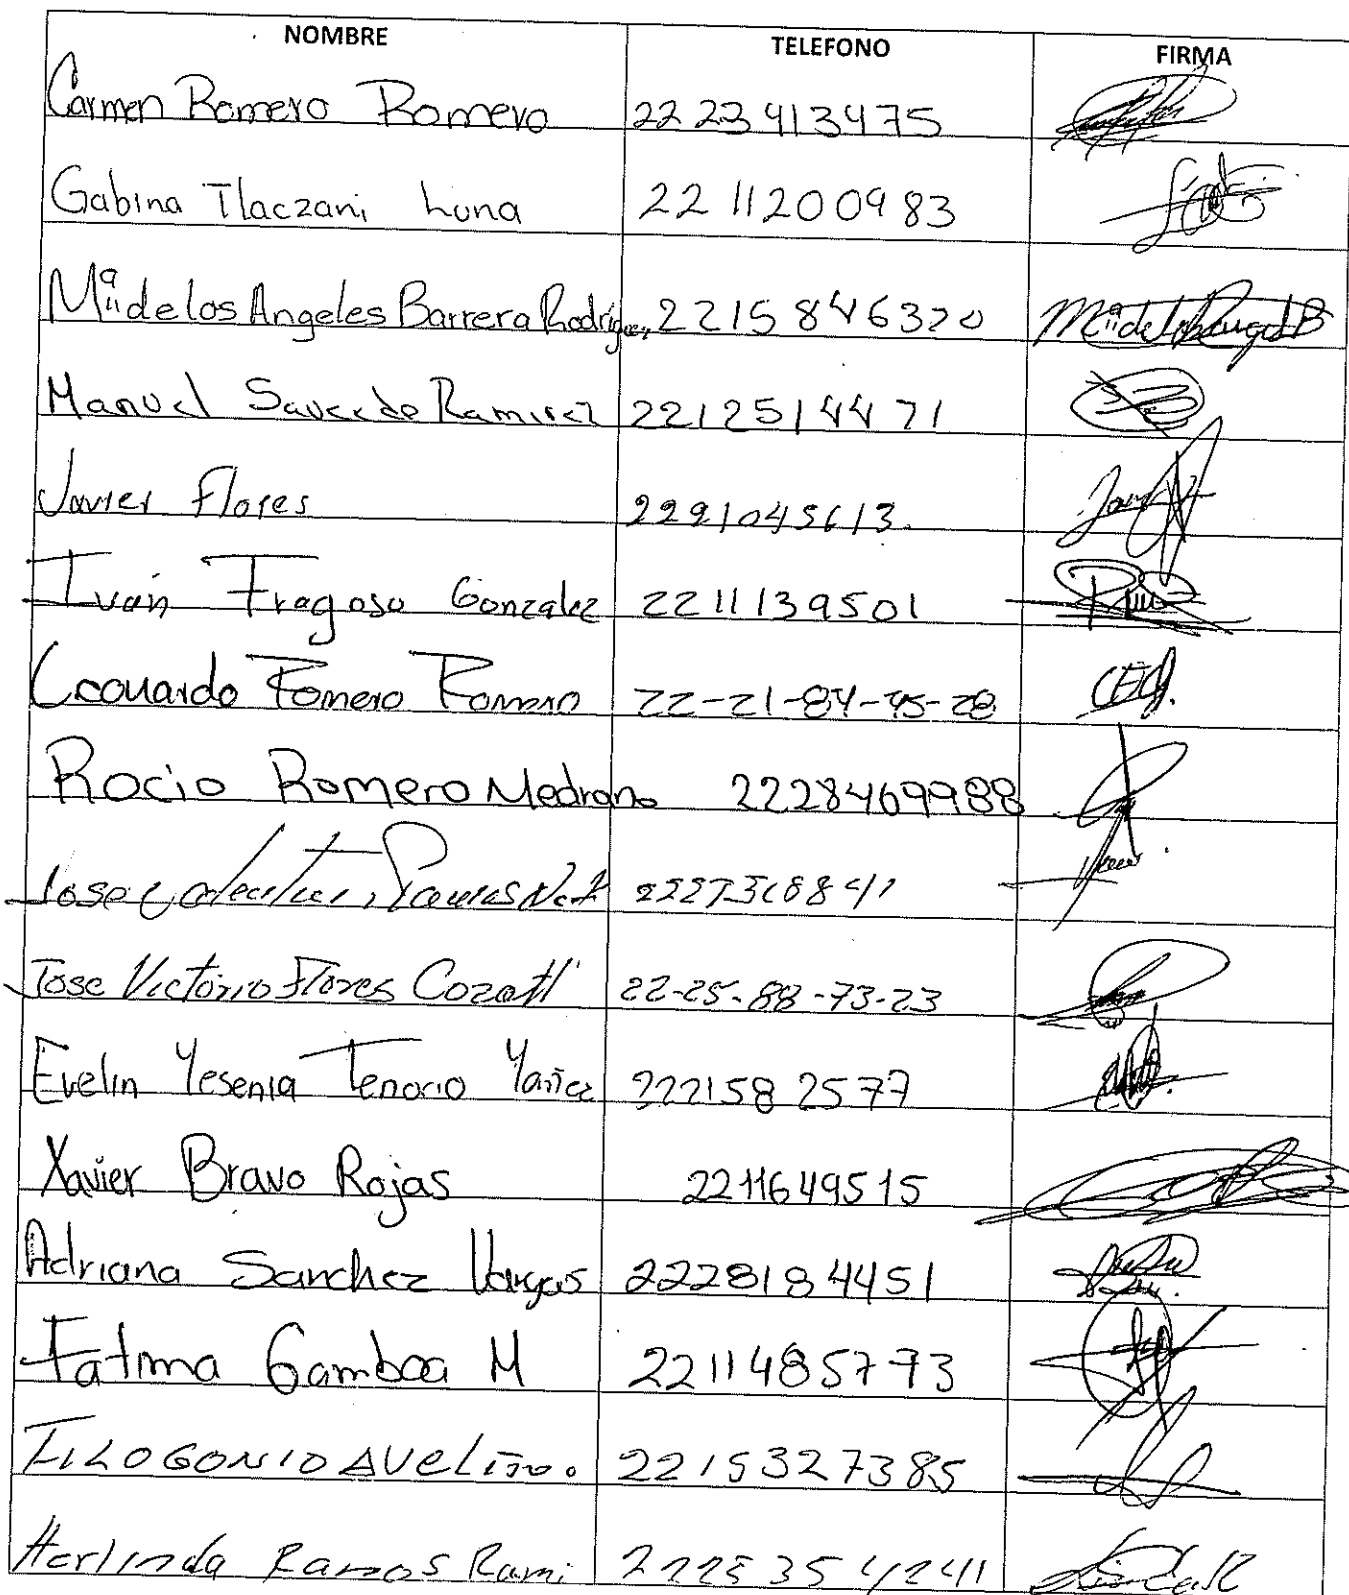 NOMBRE TELEFONO FIRMA
Carmen Romero Romero 22 23 413475
Gabina Tlaczani Luna 22 11200983
Mª de los Angeles Barrera Rodriguez 2215846320
Manuel Ramirez 2212514471
Javier Flores 2291045613.
Iván Fragoso Gonzalez 2211139501
Leonardo Romero Romero 22-21-84-45-28
Rocio Romero Medrano 2228469988
Jose
Jose Victorio Flores Cozatl 22-25-88-73-23
Evelin Yesenia Tenorio Yañez 222158 2577
Xavier Bravo Rojas 2211649515
Adriana Sanchez Vargas 2228184451
Fatima Gamboa M 2211485773
FILOGONIO AVELINO. 2215327385
Herlinda Ramos Rami 2225354241